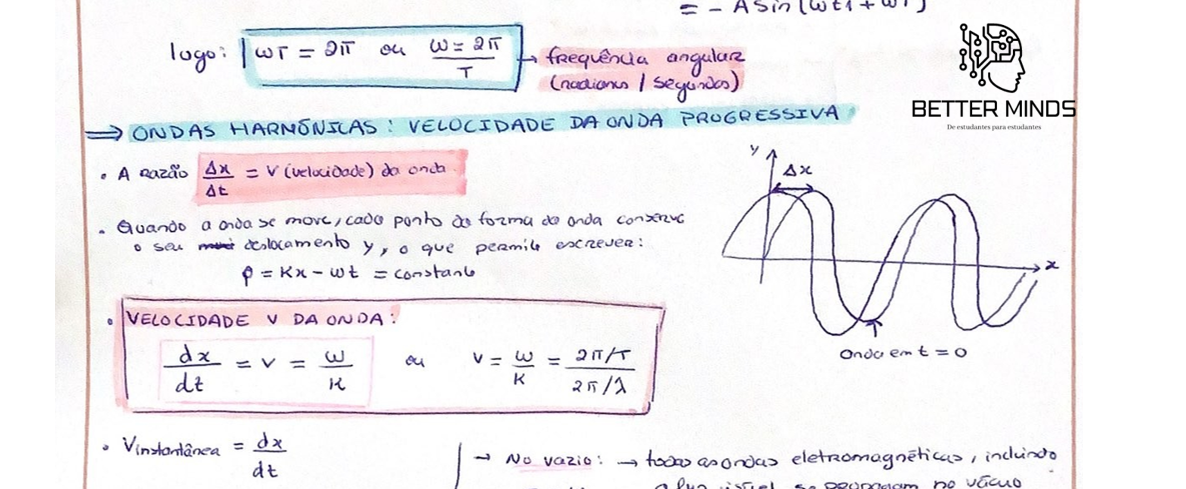 = - A Sin (ωt1 + ωT)
logo: ωT = 2π ou ω = 2π/T → frequência angular
(radianos / segundos)
BETTER MINDS
De estudantes para estudantes
⇒ ONDAS HARMÓNICAS: VELOCIDADE DA ONDA PROGRESSIVA
• A Razão Δx/Δt = v (velocidade) da onda
y
Δx
• Quando a onda se move, cada ponto da forma da onda conserva
o seu deslocamento y, o que permite escrever:
φ = Kx - ωt = constante
x
• VELOCIDADE V DA ONDA:
dx/dt = v = ω/K ou v = ω/K = 2π/T / 2π/λ
Onda em t = 0
• Vinstantânea = dx/dt
→ No vazio: → todas as ondas eletromagnéticas, incluindo
a luz visível se propagam no vácuo